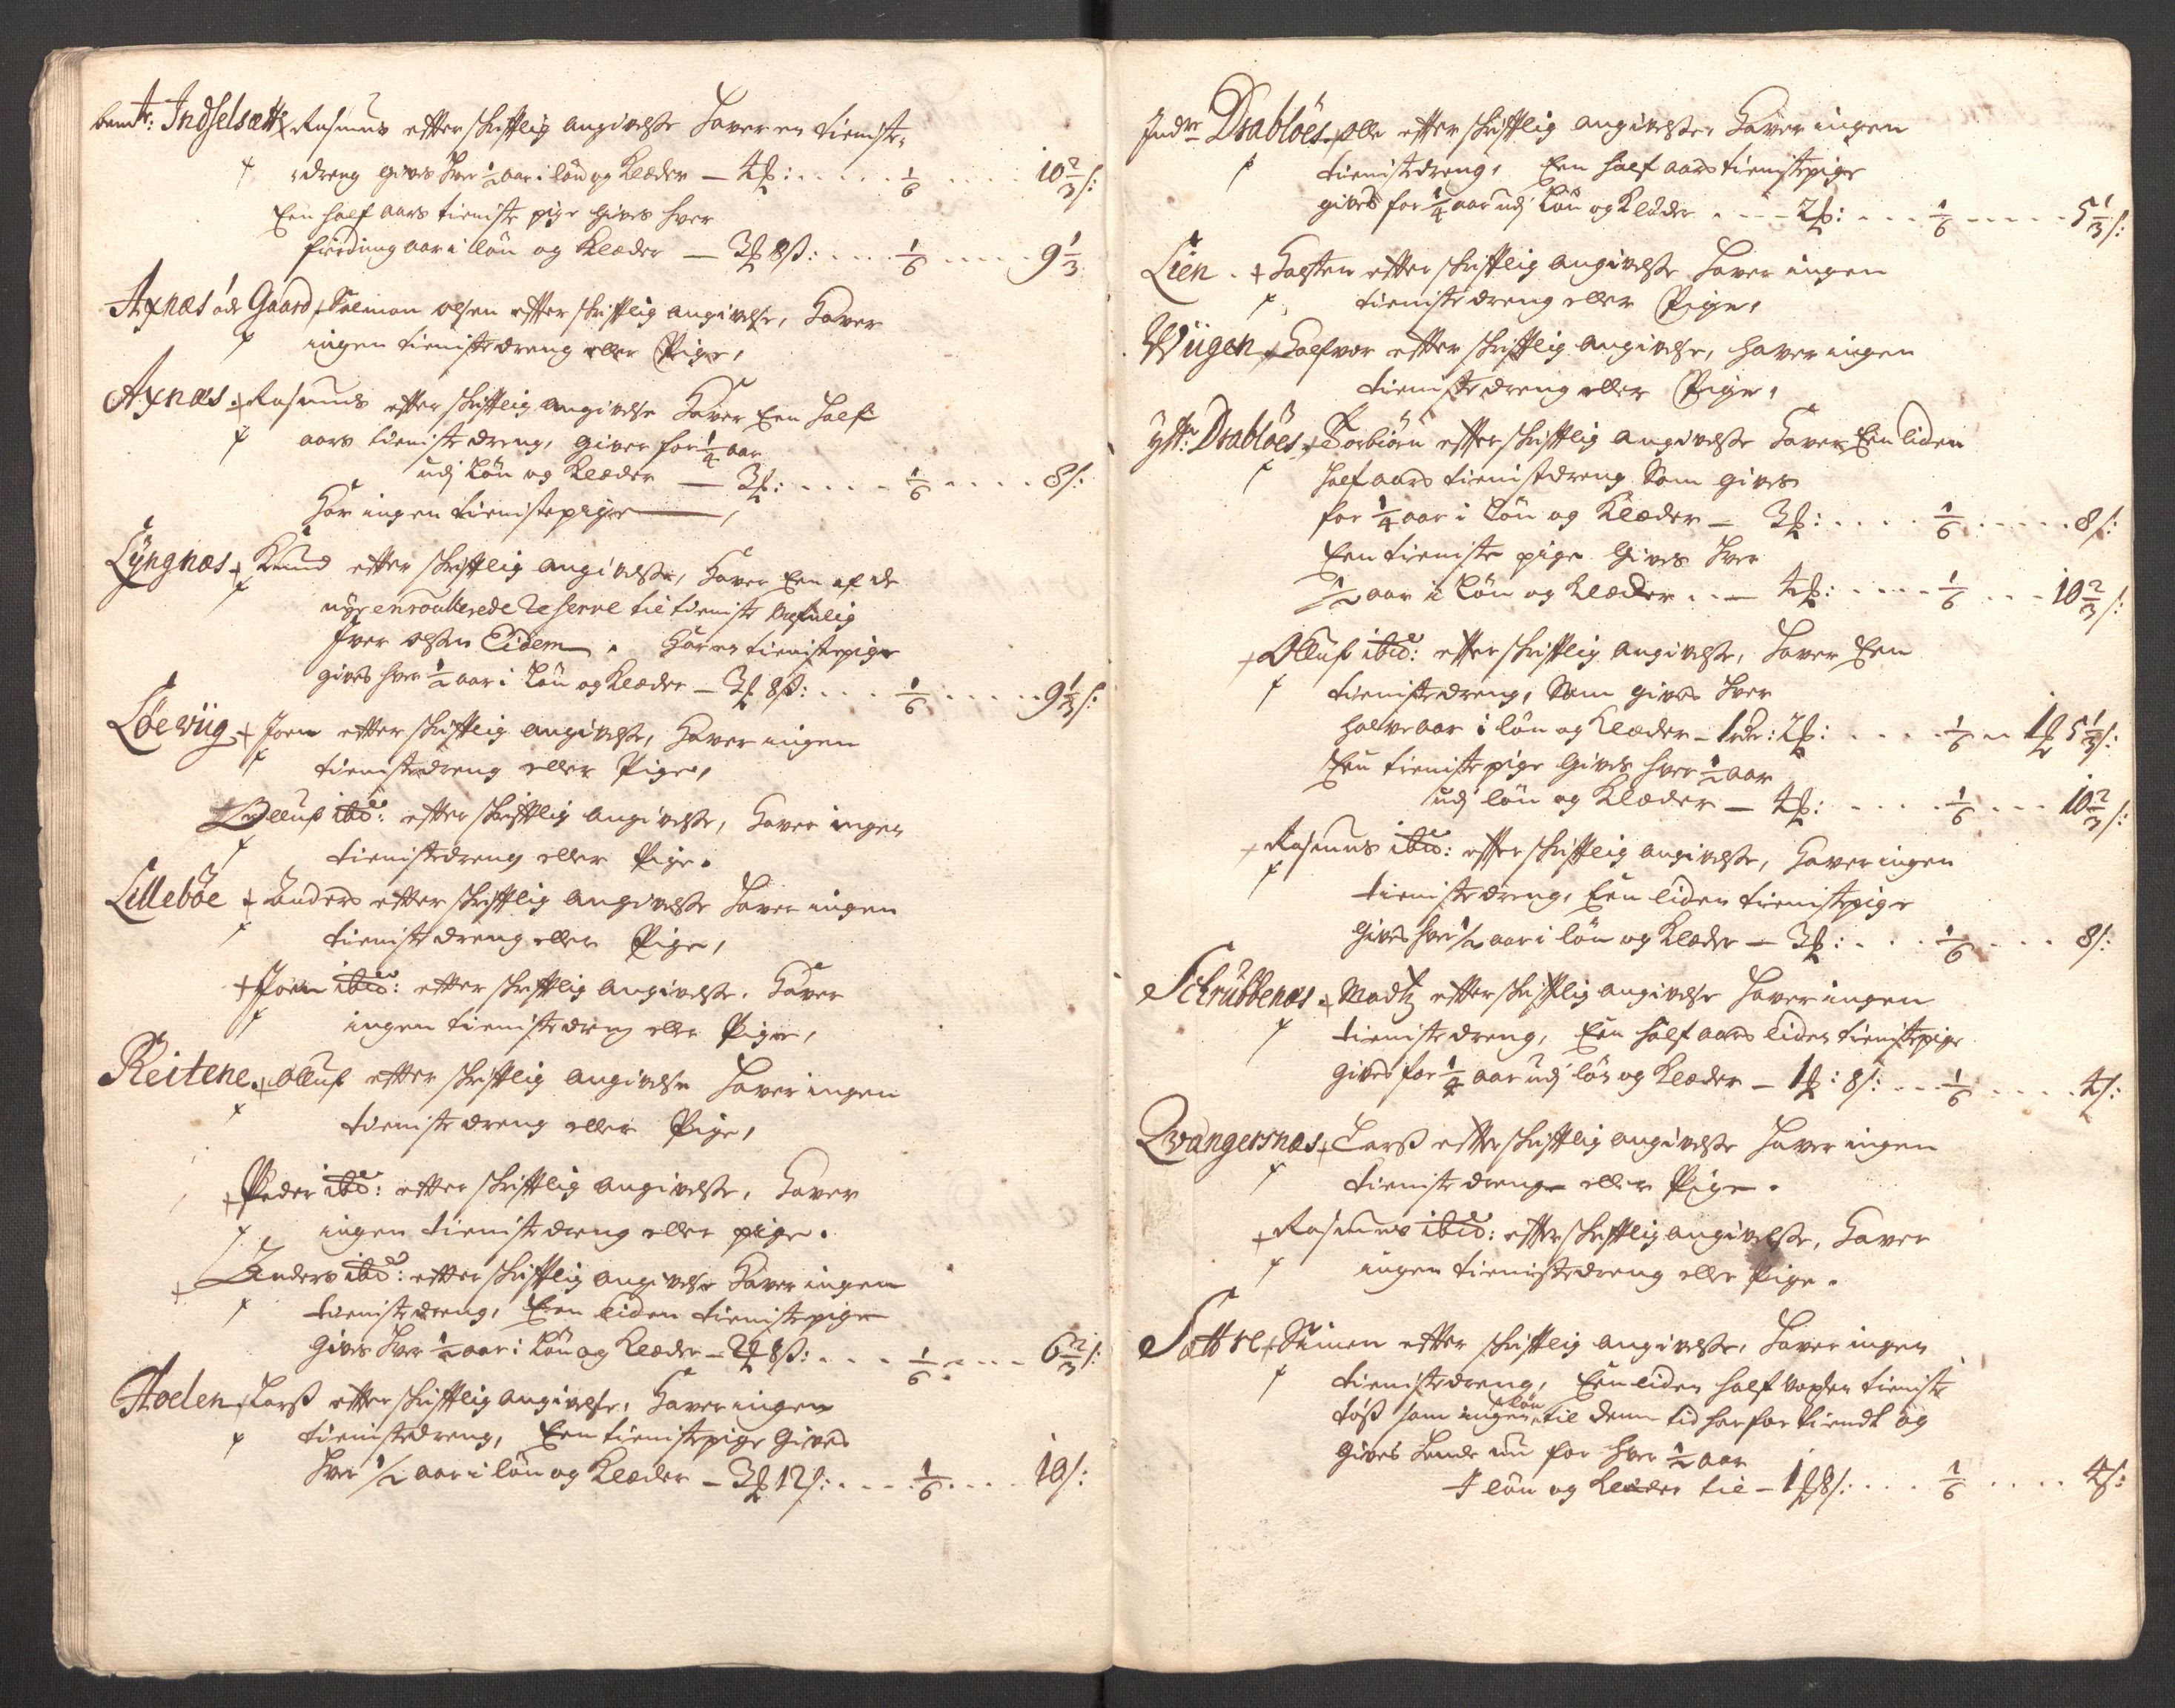 bemte: Indselsætt Rasmus efter skrifftlig angivelsse haver en tieniste
dreng gives hver 1/2 aar i løn og Klæder — 4 ℔: . . . . 1/6 . . . . 10 2/3 s:
Een half aars tieniste pige gives hver
fierding aar i løn og Klæder — 3 ℔ 8 ß: . . . 1/6 . . . . 9 1/3
Axnæs øde Gaard, Salmon olsen efter skrifftlig angivelse, haver
ingen tienistedreng eller Pige,
Axnæs. Rasmus efter skrifftlig angivelse haver Een half
aars tieniste dreng, giver for 1/4 aar
udj Løn og Klæder — 3 ℔: . . . . 1/6 . . . . 8 s:
Har ingen tienistepige —,
Lÿngnæs. Knud efter skrifftlig angivelsse, haver Een af de
nye enroullerede Reserve til tieniste
Iver olsen Eidem. har en tienistepige
gives hver 1/2 aar i Løn og Klæder — 3 ℔ 8 ß: . . . 1/6 . . . . 9 1/3 s:
Løevüg. Joen efter skrifftlig angivelsse, haver ingen
tienistedreng eller Pige,
Olluf ibid: efter skrifftlig angivelsse, haver ingen
tienistedreng eller Pige.
Lillebøe Anders efter skrifftlig angivelsse haver ingen
tieniste dreng eller Pige,
Joen ibid: efter skrifftlig angivelsse. haver
ingen tieniste dreng eller Pige,
Reitene. olluf efter skrifftlig angivelse haver ingen
tieniste dreng eller Pige,
Peder ibid: efter skrifftlig angivelsse, haver
ingen tieniste dreng eller pige.
Anders ibid: efter skrifftlig angivelse haver ingen
tieniste dreng, Een liden tienistepige
gives hver 1/2 aar i Løn og Klæder — 2 ℔ 8 ß: . . . 1/6 . . . 6 2/3 s:
Hoelen, Larß efter skrifftlig angivelse, haver ingen
tienistedreng, Een tienistepige gives
hver 1/2 aar i løn og Klæder — 3 ℔ 12 s: . . . 1/6 . . . . 10 s:
Indre Drabløes, olle efter skrifftlig angivelsse, haver ingen
tienistedreng, Een half aars tienistepige
gives for 1/4 aar udj Løn og Klæder . . . 2 ℔: . . . 1/6 . . . . 5 1/3 s:
Lien. Karsten efter skrifftlig angivelsse haver ingen
tieniste dreng eller Pige,
Wiigen, Halfvor efter skrifftlig angivelse, haver ingen
tieniste dreng eller Pige,
yste: Drabløes, Torbiørn efter skrifftlig angivelsse haver Een liden
half aars tienistdreng som gives
for 1/4 aar i Løn og Klæder — 3 ℔: . . . . 1/6 . . . . 8 s:
Een tieniste pige gives hver
1/2 aar i Løn og Klæder . . — 4 ℔: . . . . 1/6 . . . 10 2/3 s:
Olluf ibid: efter skrifftlig angivelsse, haver Een
tieniste dreng, som gives hver
halve aar i løn og Klæder — 1 rdr: 2 ℔: . . . . 1/6 . . 1 ℔ 5 1/3 s:
Een tieniste pige gives hver 1/2 aar
udj løn og Klæder — 4 ℔: . . . . 1/6 . . . 10 2/3 s:
Rasmus ibid: efter skrifftlig angivelsse, haver ingen
tieniste dreng, Een liden tienistepige
gives hver 1/2 aar i løn og Klæder — 3 ℔: . . . 1/6 . . . 8 s:
Schrübbenæs. Madtz efter skrifftlig angivelse haver ingen
tieniste dreng, Een half aars liden tienistepige
gives for 1/4 aar udj løn og Klæder — 1 ℔: 8 s: . . . 1/6 . . . . 4 s:
Qvangersnæs, Larß efter skrifftlig angivelsse haver ingen
tieniste dreng eller Pige.
Rasmus ibid: efter skrifftlig angivelsse, haver
ingen tienistedreng eller Pige.
Sættre, Simen efter skrifftlig angivelsse, haver ingen
tienistedreng, Een liden half voxsen tieniste
tøß som ingen løn til denne tid har for tiendt og
gives hende nu for hver 1/2 aar
I løn og Klæder til — 1 ℔ 8 s: . . . 1/6 . . . . 4 s: